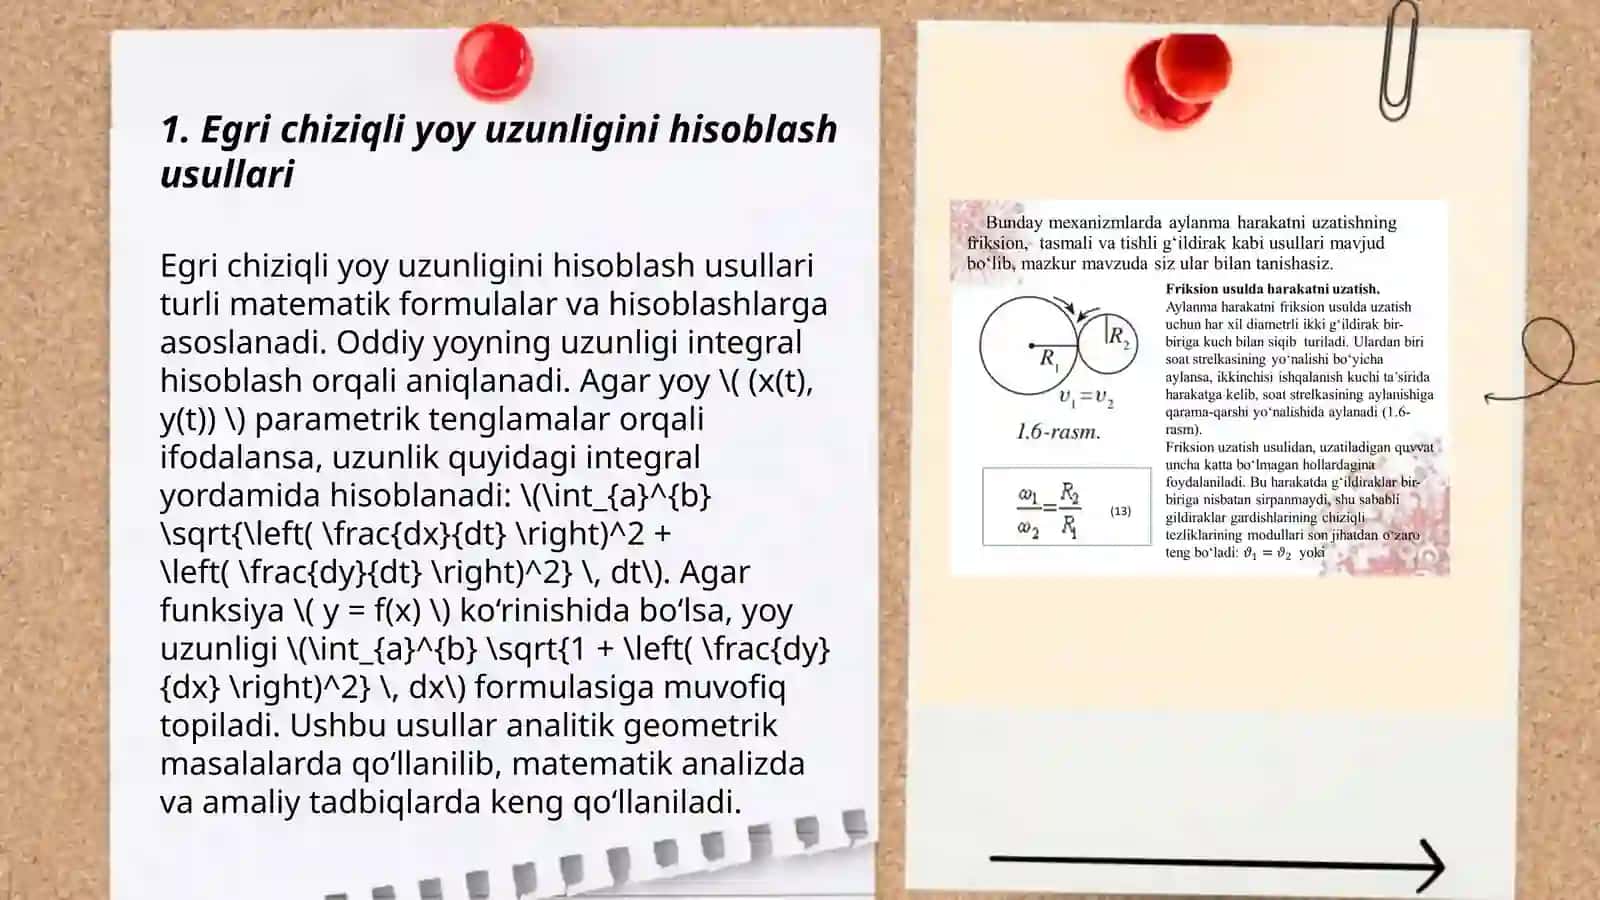 1. Egri chiziqli yoy uzunligini hisoblash
usullari
Egri chiziqli yoy uzunligini hisoblash usullari
turli matematik formulalar va hisoblashlarga
asoslanadi. Oddiy yoyning uzunligi integral
hisoblash orqali aniqlanadi. Agar yoy \( (x(t),
y(t)) \) parametrik tenglamalar orqali
ifodalansa, uzunlik quyidagi integral
yordamida hisoblanadi: \(\int_{a}^{b}
\sqrt{\left( \frac{dx}{dt} \right)^2 +
\left( \frac{dy}{dt} \right)^2} \, dt\). Agar
funksiya \( y = f(x) \) ko‘rinishida bo‘lsa, yoy
uzunligi \(\int_{a}^{b} \sqrt{1 + \left( \frac{dy}
{dx} \right)^2} \, dx\) formulasiga muvofiq
topiladi. Ushbu usullar analitik geometrik
masalalarda qo‘llanilib, matematik analizda
va amaliy tadbiqlarda keng qo‘llaniladi.
Bunday mexanizmlarda aylanma harakatni uzatishning
friksion, tasmali va tishli g‘ildirak kabi usullari mavjud
bo‘lib, mazkur mavzuda siz ular bilan tanishasiz.
R₁
R₂
υ₁=υ₂
1.6-rasm.
ω₁/ω₂=R₂/R₁ (13)
Friksion usulda harakatni uzatish.
Aylanma harakatni friksion usulda uzatish
uchun har xil diametrli ikki g‘ildirak bir-
biriga kuch bilan siqib turiladi. Ulardan biri
soat strelkasining yo‘nalishi bo‘yicha
aylansa, ikkinchisi ishqalanish kuchi ta’sirida
harakatga kelib, soat strelkasining aylanishiga
qarama-qarshi yo‘nalishida aylanadi (1.6-
rasm).
Friksion uzatish usulidan, uzatiladigan quvvat
uncha katta bo‘lmagan hollardagina
foydalaniladi. Bu harakatda g‘ildiraklar bir-
biriga nisbatan sirpanmaydi, shu sababli
gildiraklar gardishlarining chiziqli
tezliklarining modullari son jihatdan o‘zaro
teng bo‘ladi: ϑ₁ = ϑ₂ yoki